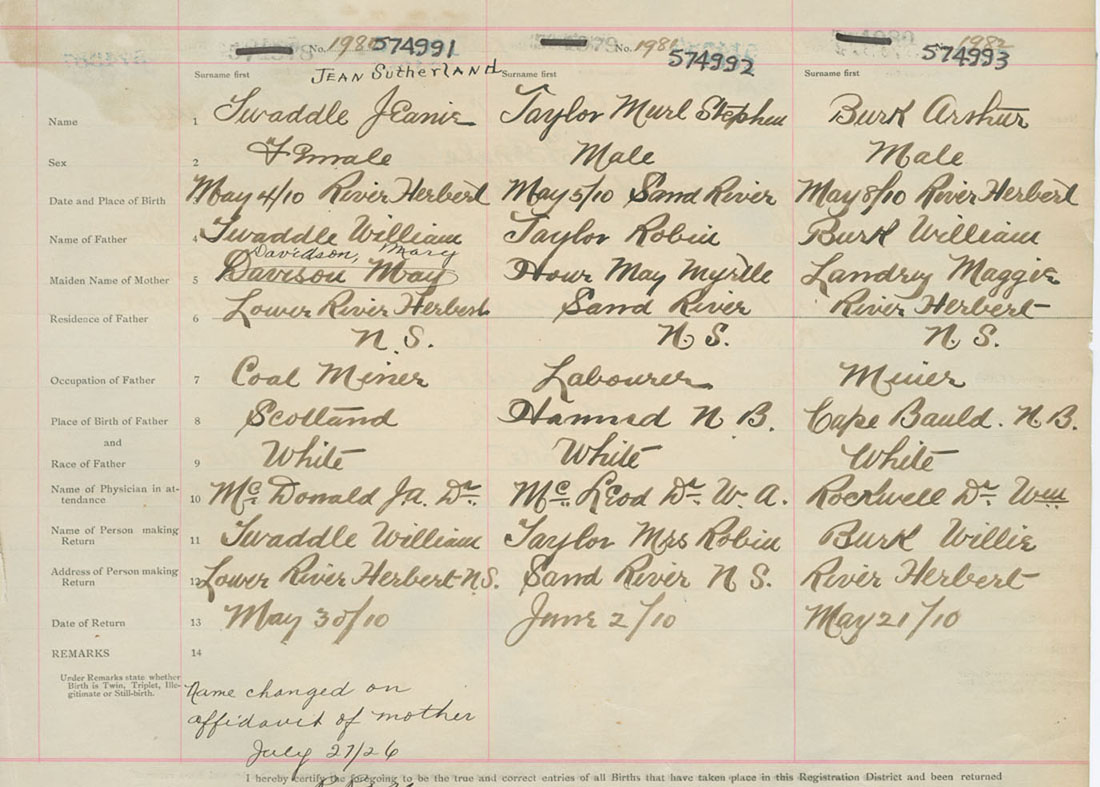 No. 1980 574991 No. 1981 574992 1982 574993
Surname first JEAN SUTHERLAND Surname first Surname first
Name 1 Twaddle Jeanie Taylor Murl Stephen Burk Arthur
Sex 2 Female Male Male
Date and Place of Birth May 4/10 River Herbert May 5/10 Sand River May 8/10 River Herbert
Name of Father 4 Twaddle William Taylor Robin Burk William
Davidson, Mary
Maiden Name of Mother 5 Davison May May Myrtle Landry Maggie
Residence of Father 6 Lower River Herbert Sand River River Herbert
N.S. N.S. N.S.
Occupation of Father 7 Coal Miner Labourer Miner
Place of Birth of Father 8 Scotland N.B. Cape Bauld. N.B.
and
Race of Father 9 White White White
Name of Physician in at-
tendance 10 Mc Donald J.A. Dr. Mc Leod Dr. W. A. Rockwell Dr. Wm
Name of Person making
Return 11 Twaddle William Taylor Mrs Robin Burk Willie
Address of Person making
Return 12 Lower River Herbert N.S. Sand River N S. River Herbert
Date of Return 13 May 30/10 June 2/10 May 21/10
REMARKS 14
Under Remarks state whether
Birth is Twin, Triplet, Ille-
gitimate or Still-birth.
Name changed on
affidavit of mother
July 27/26
I hereby certify the foregoing to be the true and correct entries of all Births that have taken place in this Registration District and been returned